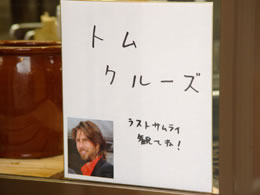 トム
クルーズ
ラストサムライ
観てネ!